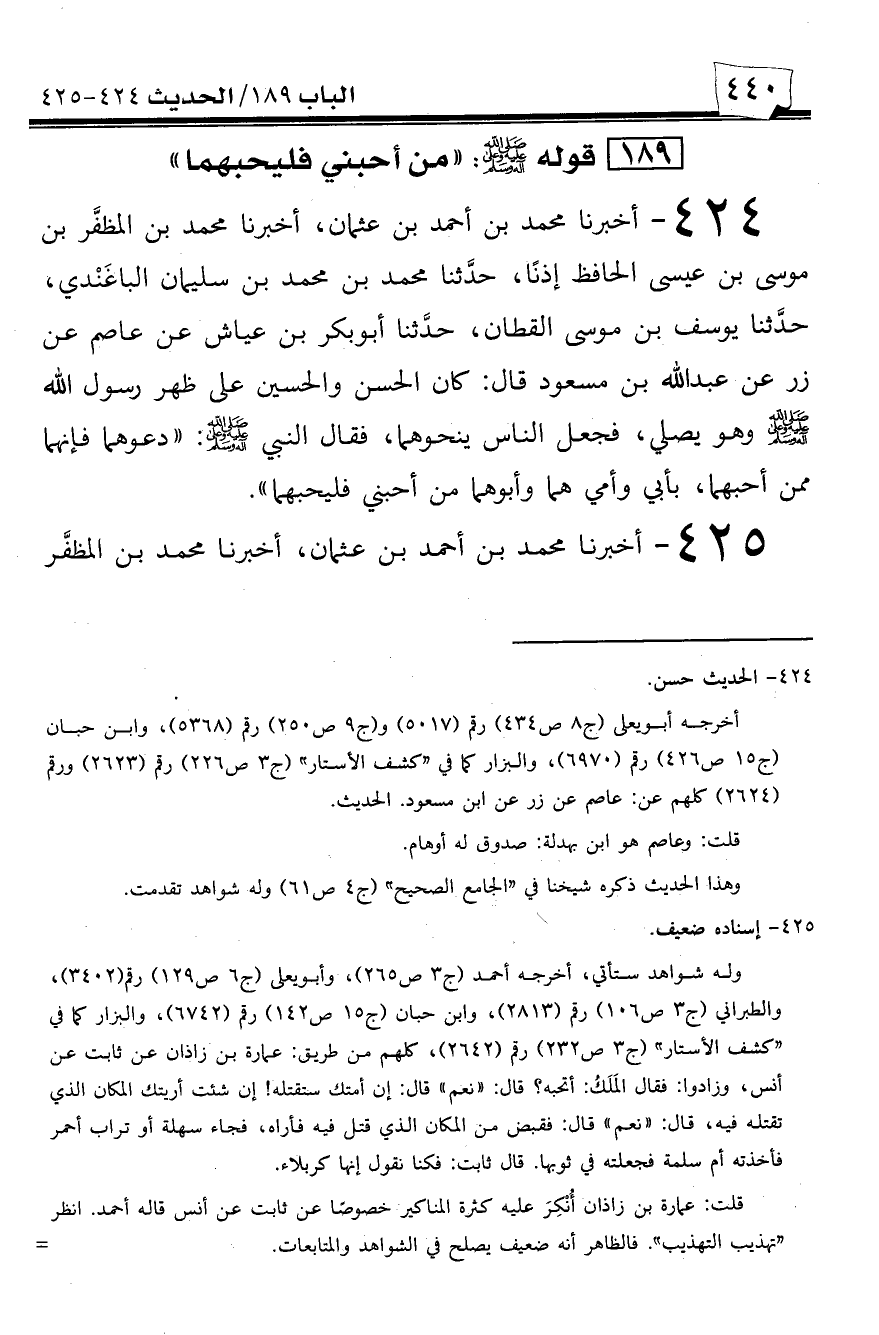 ٤٤٠ الباب ١٨٩/ الحديث ٤٢٤-٤٢٥
١٨٩ قوله ﷺ: «من أحبني فليحبهما»
٤٢٤ - أخبرنا محمد بن أحمد بن عثمان، أخبرنا محمد بن المظفَّر بن
موسى بن عيسى الحافظ إذنًا، حدَّثنا محمد بن محمد بن سليمان الباغَنْدي،
حدَّثنا يوسف بن موسى القطان، حدَّثنا أبوبكر بن عياش عن عاصم عن
زر عن عبدالله بن مسعود قال: كان الحسن والحسين على ظهر رسول الله
ﷺ وهو يصلي، فجعل الناس ينحوهما، فقال النبي ﷺ: «دعوهما فإنهما
ممن أحبهما، بأبي وأمي هما وأبوهما من أحبني فليحبهما».
٤٢٥ - أخبرنا محمد بن أحمد بن عثمان، أخبرنا محمد بن المظفَّر
٤٢٤- الحديث حسن.
أخرجه أبويعلى (ج٨ ص٤٣٤) رقم (٥٠١٧) و(ج٩ ص٢٥٠) رقم (٥٣٦٨)، وابن حبان
(ج١٥ ص٤٢٦) رقم (٦٩٧٠)، والبزار كما في "كشف الأستار" (ج٣ ص٢٢٦) رقم (٢٦٢٣) ورقم
(٢٦٢٤) كلهم عن: عاصم عن زر عن ابن مسعود. الحديث.
قلت: وعاصم هو ابن بهدلة: صدوق له أوهام.
وهذا الحديث ذكره شيخنا في "الجامع الصحيح" (ج٤ ص٦١) وله شواهد تقدمت.
٤٢٥- إسناده ضعيف.
وله شواهد ستأتي، أخرجه أحمد (ج٣ ص٢٦٥)، وأبويعلى (ج٦ ص١٢٩) رقم(٣٤٠٢)،
والطبراني (ج٣ ص١٠٦) رقم (٢٨١٣)، وابن حبان (ج١٥ ص١٤٢) رقم (٦٧٤٢)، والبزار كما في
"كشف الأستار" (ج٣ ص٢٣٢) رقم (٢٦٤٢)، كلهم من طريق: عمارة بن زاذان عن ثابت عن
أنس، وزادوا: فقال المَلَكُ: أتحبه؟ قال: «نعم» قال: إن أمتك ستقتله! إن شئت أريتك المكان الذي
تقتله فيه، قال: «نعم» قال: فقبض من المكان الذي قتل فيه فأراه، فجاء سهلة أو تراب أحمر
فأخذته أم سلمة فجعلته في ثوبها. قال ثابت: فكنا نقول إنها كربلاء.
قلت: عمارة بن زاذان أُنْكِرَ عليه كثرة المناكير خصوصًا عن ثابت عن أنس قاله أحمد. انظر
"تهذيب التهذيب". فالظاهر أنه ضعيف يصلح في الشواهد والمتابعات. =